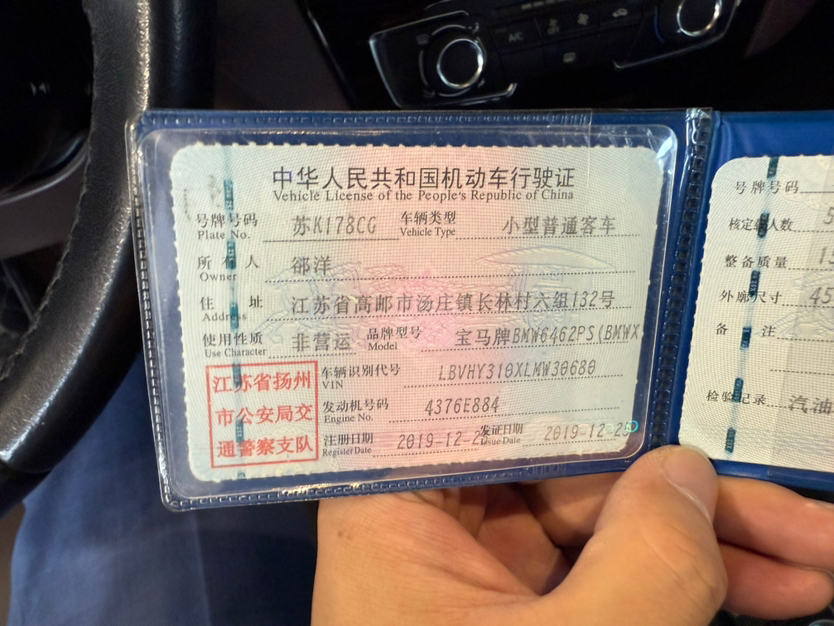 A/C
中华人民共和国机动车行驶证
Vehicle License of the People's Republic of China
号牌号码 苏K178CG 车辆类型 小型普通客车
Plate No. Vehicle Type
所有人 邵洋
Owner
住址 江苏省高邮市汤庄镇长林村六组132号
Address
使用性质 非营运 品牌型号 宝马牌BMW6462PS(BMWX
Use Character Model
江苏省扬州
市公安局交
通警察支队
车辆识别代号 LBVHY310XLMW30680
VIN
发动机号码 4376E884
Engine No.
注册日期 2019-12-2 发证日期 2019-12-25
Register Date Issue Date
号牌号码
核定载人数 5
整备质量
外廓尺寸 45
备注
检验记录 汽油